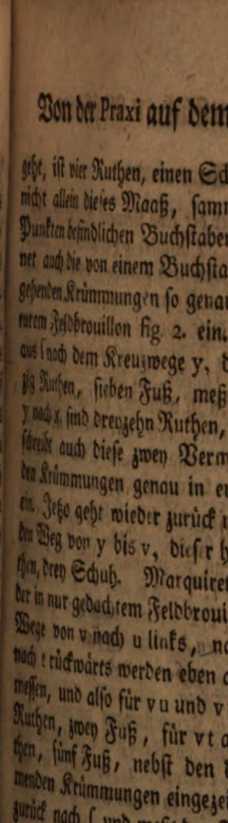 Von der Praxi auf dem
geht, ist vier Ruthen, einen Sch
nicht allein dieses Maaß, samm
Punkten befindlichen Buchstaben
net auch die von einem Buchsta
gehenden Krümmungen so genau
eurem Feldbrouillon fig. 2. ein.
aus l nach dem Kreuzwege y, d
zig Ruthen, sieben Fuß, meß
y nach x, sind dreyzehn Ruthen,
schreibt auch diese zwey Verm
den Krümmungen genau in e
ein. Jetzo geht wieder zurück
den Weg von y bis v, dieser h
then, drey Schuh. Marquiret
der in nur gedachtem Feldbroui
Wege von v nach u links, na
nach t rückwärts werden eben
messen, und also für v u und v
Ruthen, zwey Fuß, für v t a
then, fünf Fuß, nebst den
menden Krümmungen eingezei
zurück nach